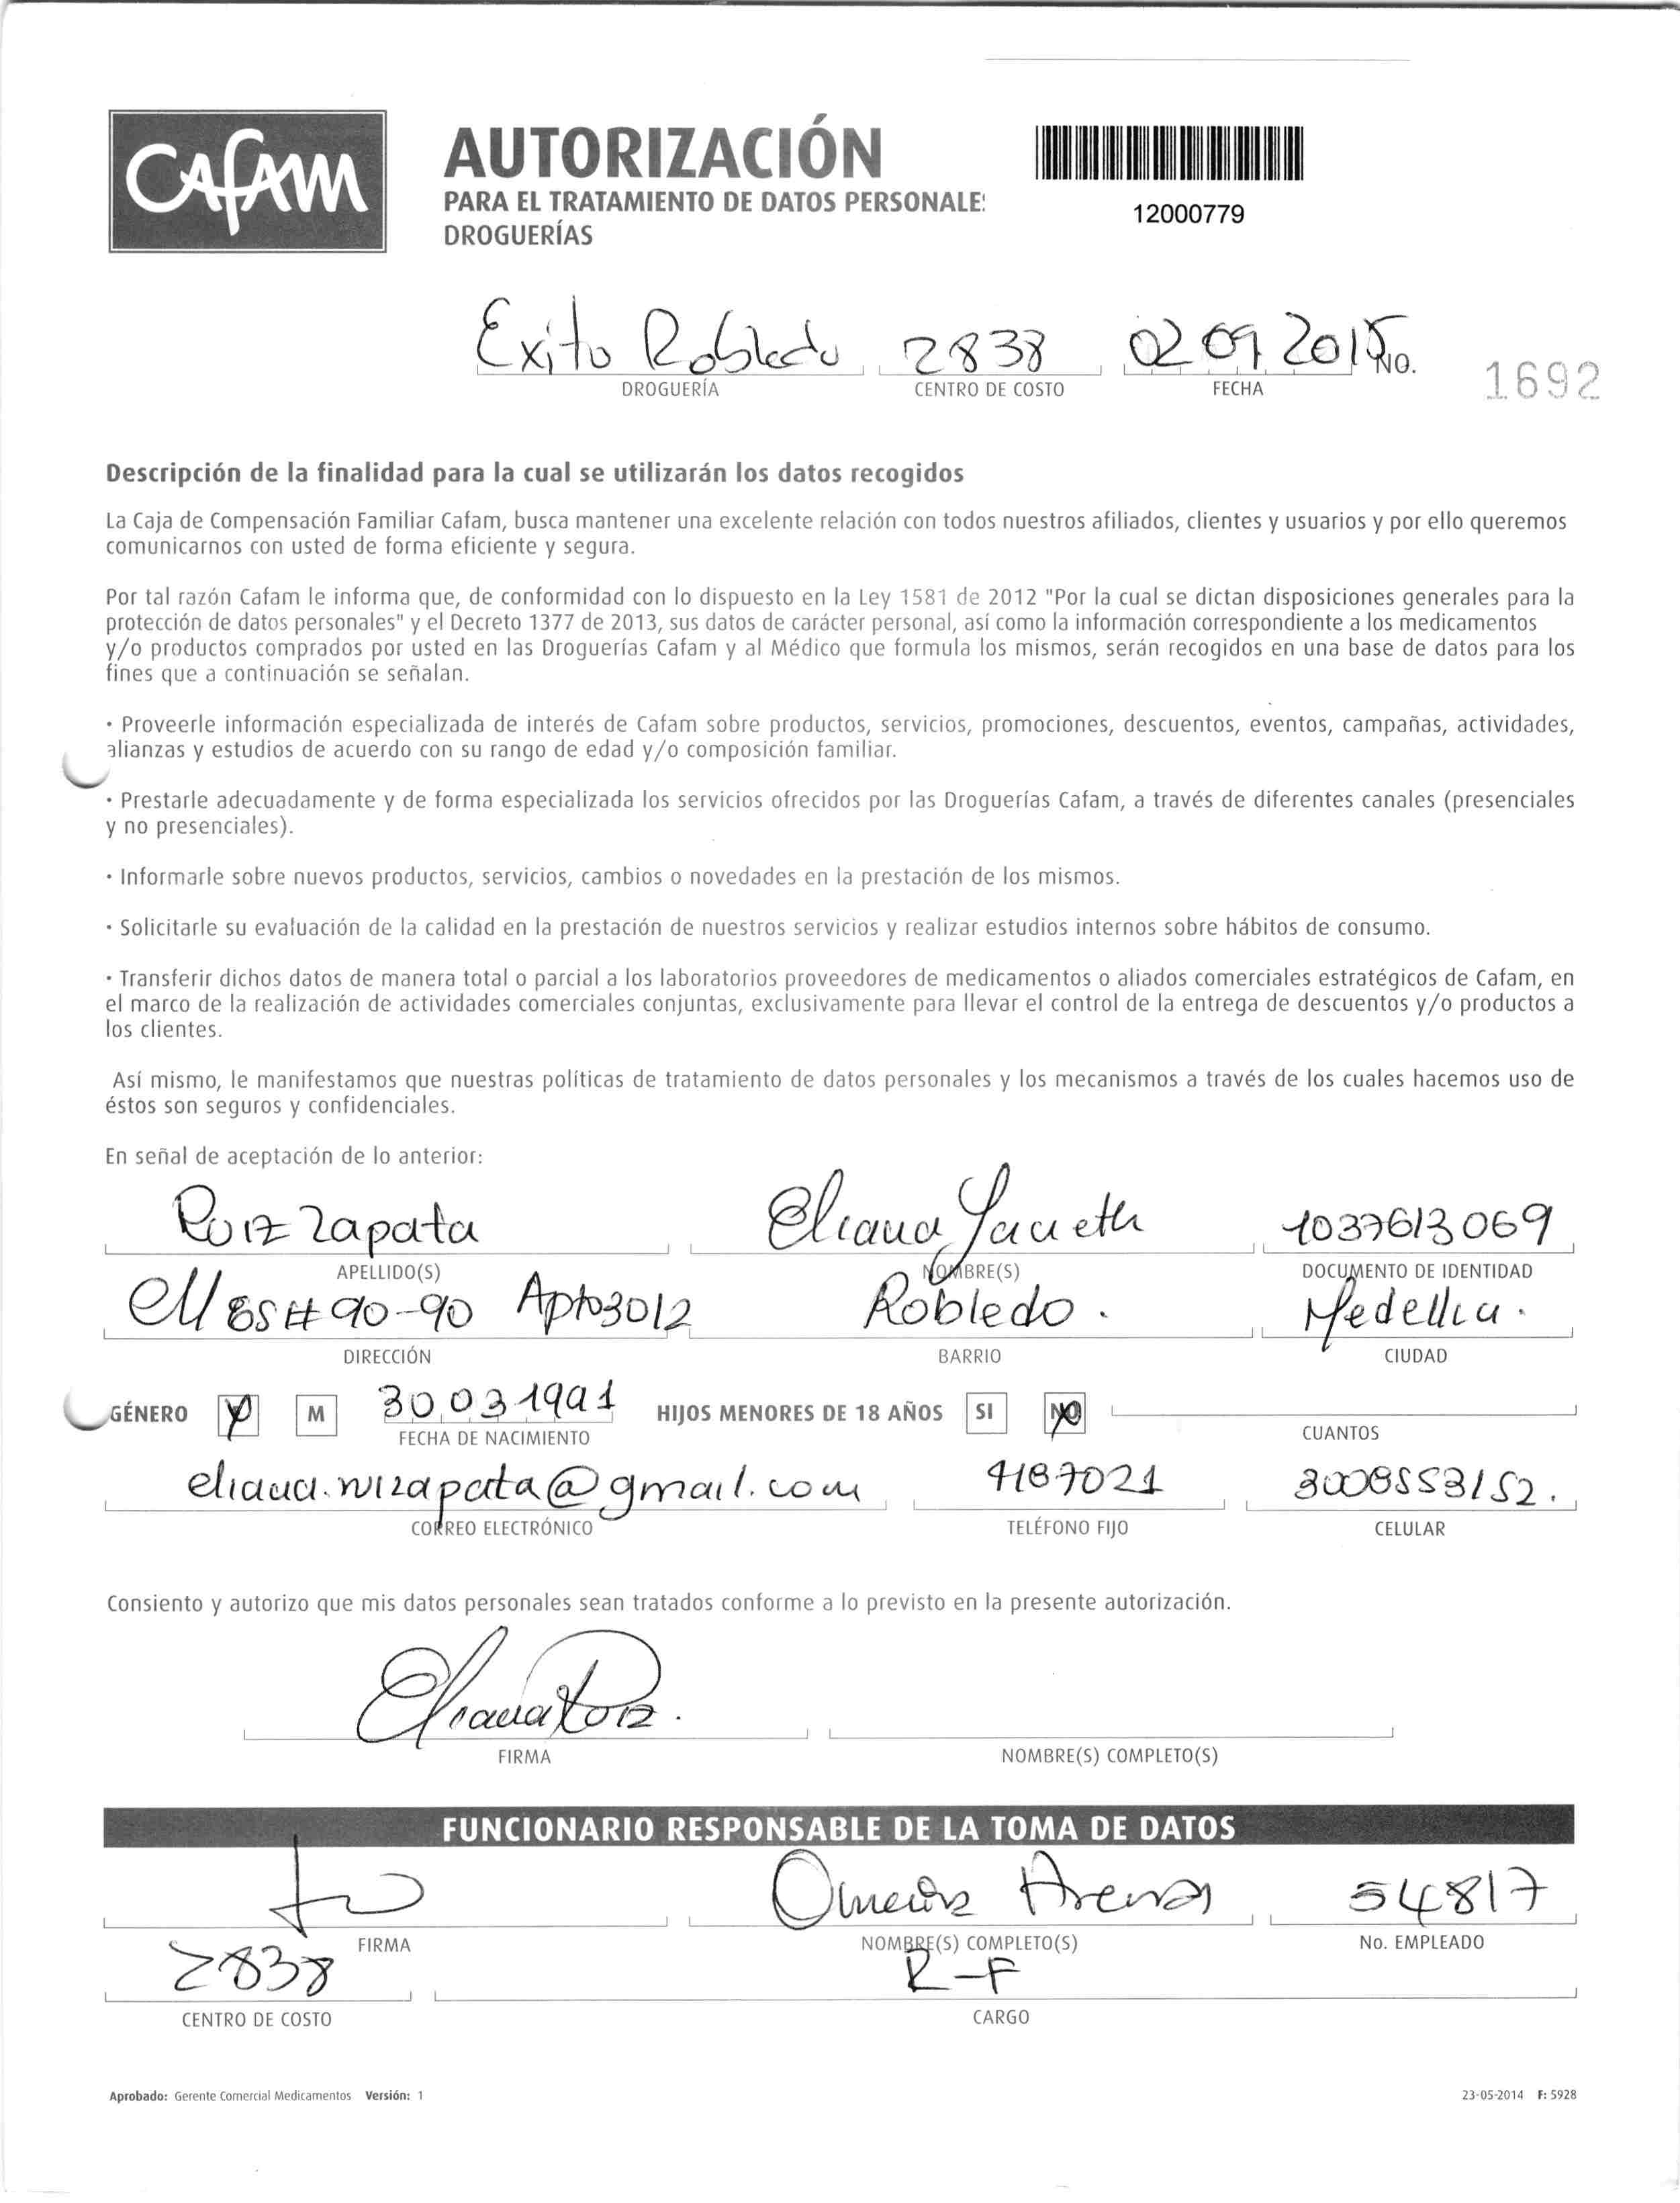 Cafam
AUTORIZACIÓN
PARA EL TRATAMIENTO DE DATOS PERSONALE
DROGUERÍAS
12000779
Exito Robledo 2838 02 09 2015 NO. 1692
DROGUERÍA CENTRO DE COSTO FECHA
Descripción de la finalidad para la cual se utilizarán los datos recogidos
La Caja de Compensación Familiar Cafam, busca mantener una excelente relación con todos nuestros afiliados, clientes y usuarios y por ello queremos
comunicarnos con usted de forma eficiente y segura.
Por tal razón Cafam le informa que, de conformidad con lo dispuesto en la Ley 1581 de 2012 "Por la cual se dictan disposiciones generales para la
protección de datos personales" y el Decreto 1377 de 2013, sus datos de carácter personal, así como la información correspondiente a los medicamentos
y/o productos comprados por usted en las Droguerías Cafam y al Médico que formula los mismos, serán recogidos en una base de datos para los
fines que a continuación se señalan.
· Proveerle información especializada de interés de Cafam sobre productos, servicios, promociones, descuentos, eventos, campañas, actividades,
alianzas y estudios de acuerdo con su rango de edad y/o composición familiar.
· Prestarle adecuadamente y de forma especializada los servicios ofrecidos por las Droguerías Cafam, a través de diferentes canales (presenciales
y no presenciales).
· Informarle sobre nuevos productos, servicios, cambios o novedades en la prestación de los mismos.
· Solicitarle su evaluación de la calidad en la prestación de nuestros servicios y realizar estudios internos sobre hábitos de consumo.
· Transferir dichos datos de manera total o parcial a los laboratorios proveedores de medicamentos o aliados comerciales estratégicos de Cafam, en
el marco de la realización de actividades comerciales conjuntas, exclusivamente para llevar el control de la entrega de descuentos y/o productos a
los clientes.
Así mismo, le manifestamos que nuestras políticas de tratamiento de datos personales y los mecanismos a través de los cuales hacemos uso de
éstos son seguros y confidenciales.
En señal de aceptación de lo anterior:
Ruiz Zapata Eliana Yaneth 1037613069
APELLIDO(S) NOMBRE(S) DOCUMENTO DE IDENTIDAD
Cll 65 # 90-90 Apto 3012 Robledo . Medellin .
DIRECCIÓN BARRIO CIUDAD
GÉNERO M 30 03 1991 HIJOS MENORES DE 18 AÑOS SI NO
FECHA DE NACIMIENTO CUANTOS
eliana.ruizapata@gmail.com 4187021 3008553152.
CORREO ELECTRÓNICO TELÉFONO FIJO CELULAR
Consiento y autorizo que mis datos personales sean tratados conforme a lo previsto en la presente autorización.
Eliana Ruiz.
FIRMA NOMBRE(S) COMPLETO(S)
FUNCIONARIO RESPONSABLE DE LA TOMA DE DATOS
Arenas 54817
FIRMA NOMBRE(S) COMPLETO(S) No. EMPLEADO
2838 R-F
CENTRO DE COSTO CARGO
Aprobado: Gerente Comercial Medicamentos Versión: 1 23-05-2014 F: 5928